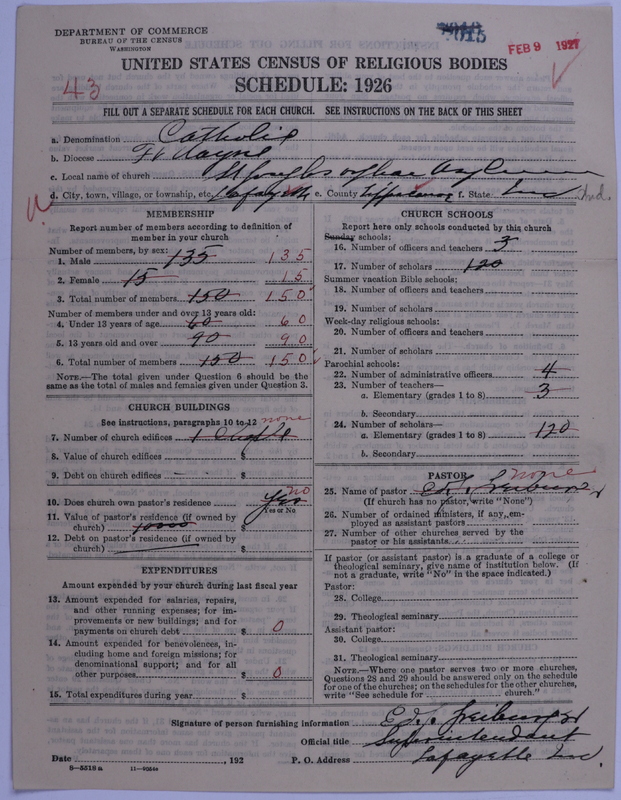 DEPARTMENT OF COMMERCE
BUREAU OF THE CENSUS
WASHINGTON
FEB 9 1927
UNITED STATES CENSUS OF RELIGIOUS BODIES
SCHEDULE: 1926
43
FILL OUT A SEPARATE SCHEDULE FOR EACH CHURCH. SEE INSTRUCTIONS ON THE BACK OF THIS SHEET
a. Denomination Catholic
b. Diocese Ft Wayne
c. Local name of church St Josephs orphan Asylum
d. City, town, village, or township, etc. Lafayette e. County Tippecanoe f. State Ind Ind.
MEMBERSHIP
Report number of members according to definition of
member in your church
Number of members, by sex:
1. Male 135 135
2. Female 15 15
3. Total number of members 150 150
Number of members under and over 13 years old:
4. Under 13 years of age 60 60
5. 13 years old and over 90 90
6. Total number of members 150 150
NOTE.—The total given under Question 6 should be the
same as the total of males and females given under Question 3.
CHURCH BUILDINGS
See instructions, paragraphs 10 to 12 none
7. Number of church edifices 1
8. Value of church edifices $
9. Debt on church edifices $
10. Does church own pastor's residence Yes no
Yes or No
11. Value of pastor's residence (if owned by
church) $
12. Debt on pastor's residence (if owned by
church) $
EXPENDITURES
Amount expended by your church during last fiscal year
13. Amount expended for salaries, repairs,
and other running expenses; for im-
provements or new buildings; and for
payments on church debt $ 0
14. Amount expended for benevolences, in-
cluding home and foreign missions; for
denominational support; and for all
other purposes $ 0
15. Total expenditures during year $
CHURCH SCHOOLS
Report here only schools conducted by this church
Sunday schools:
16. Number of officers and teachers 3
17. Number of scholars 120
Summer vacation Bible schools:
18. Number of officers and teachers
19. Number of scholars
Week-day religious schools:
20. Number of officers and teachers
21. Number of scholars
Parochial schools:
22. Number of administrative officers 4
23. Number of teachers—
a. Elementary (grades 1 to 8) 3
b. Secondary
24. Number of scholars—
a. Elementary (grades 1 to 8) 120
b. Secondary
PASTOR none
25. Name of pastor
(If church has no pastor, write "None")
26. Number of ordained ministers, if any, em-
ployed as assistant pastors
27. Number of other churches served by the
pastor or his assistants
If pastor (or assistant pastor) is a graduate of a college or
theological seminary, give name of institution below. (If
not a graduate, write "No" in the space indicated.)
Pastor:
28. College
29. Theological seminary
Assistant pastor:
30. College
31. Theological seminary
NOTE.—Where one pastor serves two or more churches,
Questions 28 and 29 should be answered only on the schedule
for one of the churches; on the schedules for the other churches,
write "See schedule for church."
Signature of person furnishing information
Official title Superintendent
Date , 192 P. O. Address Lafayette Ind
8—5518a 11—9064